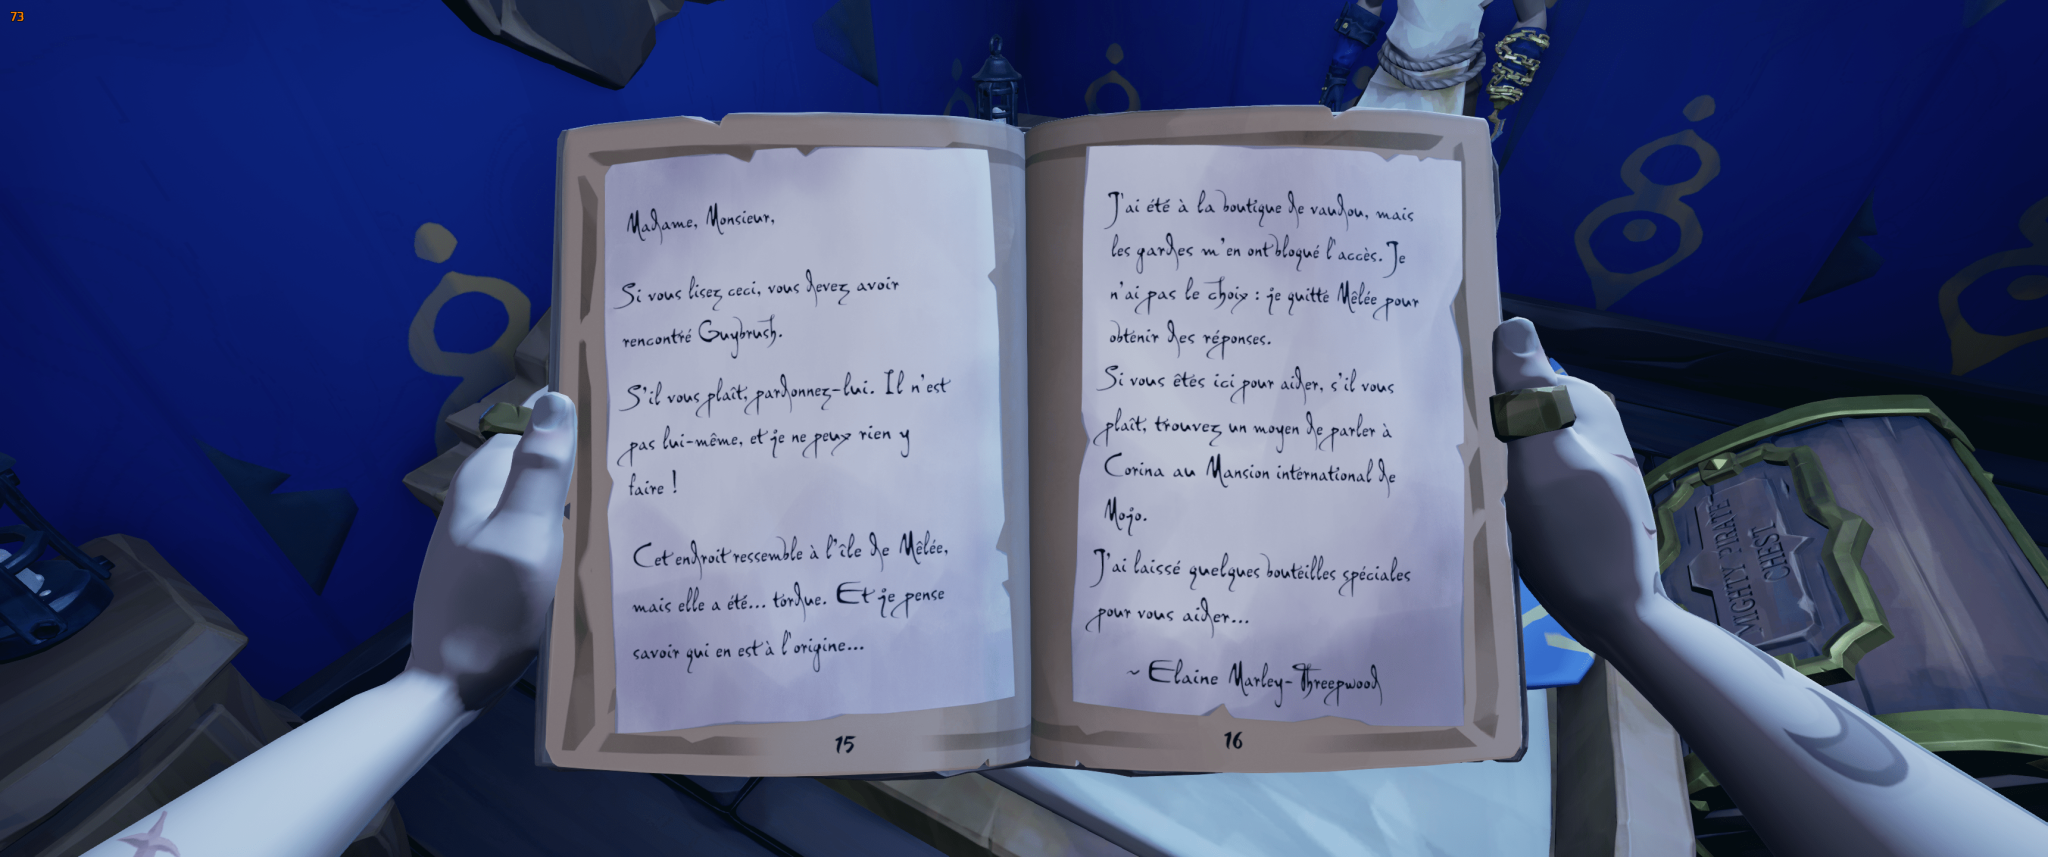 73
Madame, Monsieur,
Si vous lisez ceci, vous devez avoir
rencontré Guybrush.
S'il vous plaît, pardonnez-lui. Il n'est
pas lui-même, et je ne peux rien y
faire !
Cet endroit ressemble à l'île de Mêlée,
mais elle a été... tordue. Et je pense
savoir qui en est à l'origine...
15
J'ai été à la boutique de vaudou, mais
les gardes m'en ont bloqué l'accès. Je
n'ai pas le choix : je quitte Mêlée pour
obtenir des réponses.
Si vous êtes ici pour aider, s'il vous
plaît, trouvez un moyen de parler à
Corina au Mansion international de
Mojo.
J'ai laissé quelques bouteilles spéciales
pour vous aider...
~ Elaine Marley-Threepwood
16
MIGHTY PIRATE
CHEST